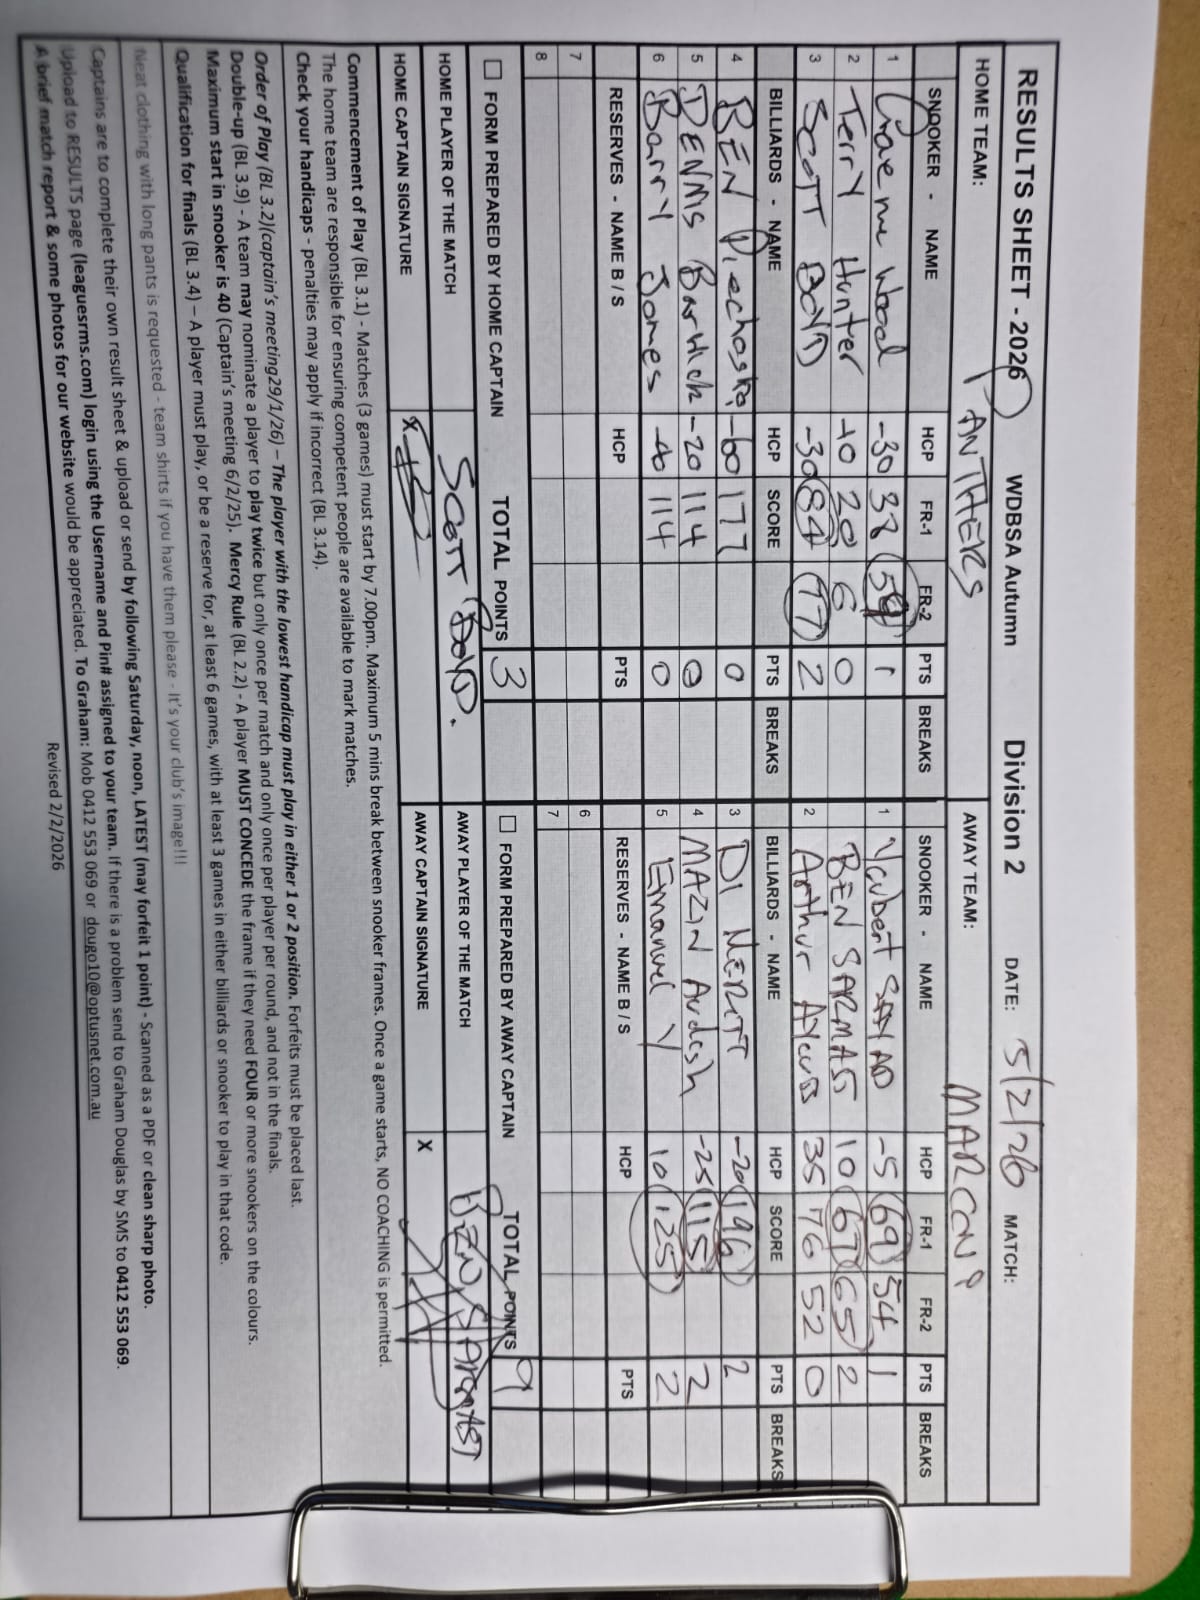 RESULTS SHEET - 2026 WDBSA Autumn Division 2 DATE: 5/2/26 MATCH:
HOME TEAM: PANTHERS AWAY TEAM: MARCONI
SNOOKER - NAME HCP FR-1 FR-2 PTS BREAKS SNOOKER - NAME HCP FR-1 FR-2 PTS BREAKS
1 Graeme Wood -30 38 59 1 1 Youbert SAYAD -5 69 54 1
2 Terry Hunter -10 20 6 0 BEN SARMAST 10 67 65 2
3 Scott BOYD -30 84 77 2 2 Arthur 35 76 52 0
BILLIARDS - NAME HCP SCORE PTS BREAKS BILLIARDS - NAME HCP SCORE PTS BREAKS
4 BEN -60 177 0 3 DI MERITT -20 196 2
5 DENNIS -20 114 0 4 MAZIN -25 115 2
6 Barry James 114 0 5 Emanuel Y 10 125 2
RESERVES - NAME B / S HCP PTS RESERVES - NAME B / S HCP PTS
7 6
8 7
FORM PREPARED BY HOME CAPTAIN TOTAL POINTS 3 FORM PREPARED BY AWAY CAPTAIN TOTAL POINTS 9
HOME PLAYER OF THE MATCH SCOTT BOYD. AWAY PLAYER OF THE MATCH BEN SARMAST
HOME CAPTAIN SIGNATURE X AWAY CAPTAIN SIGNATURE X
Commencement of Play (BL 3.1) - Matches (3 games) must start by 7.00pm. Maximum 5 mins break between snooker frames. Once a game starts, NO COACHING is permitted.
The home team are responsible for ensuring competent people are available to mark matches.
Check your handicaps - penalties may apply if incorrect (BL 3.14).
Order of Play (BL 3.2)(captain's meeting29/1/26) – The player with the lowest handicap must play in either 1 or 2 position. Forfeits must be placed last.
Double-up (BL 3.9) - A team may nominate a player to play twice but only once per match and only once per player per round, and not in the finals.
Maximum start in snooker is 40 (Captain's meeting 6/2/25). Mercy Rule (BL 2.2) - A player MUST CONCEDE the frame if they need FOUR or more snookers on the colours.
Qualification for finals (BL 3.4) – A player must play, or be a reserve for, at least 6 games, with at least 3 games in either billiards or snooker to play in that code.
Neat clothing with long pants is requested - team shirts if you have them please - It's your club's image!!!
Captains are to complete their own result sheet & upload or send by following Saturday, noon, LATEST (may forfeit 1 point) - Scanned as a PDF or clean sharp photo.
Upload to RESULTS page (leaguesrms.com) login using the Username and Pin# assigned to your team. If there is a problem send to Graham Douglas by SMS to 0412 553 069.
A brief match report & some photos for our website would be appreciated. To Graham: Mob 0412 553 069 or dougo10@optusnet.com.au
Revised 2/2/2026